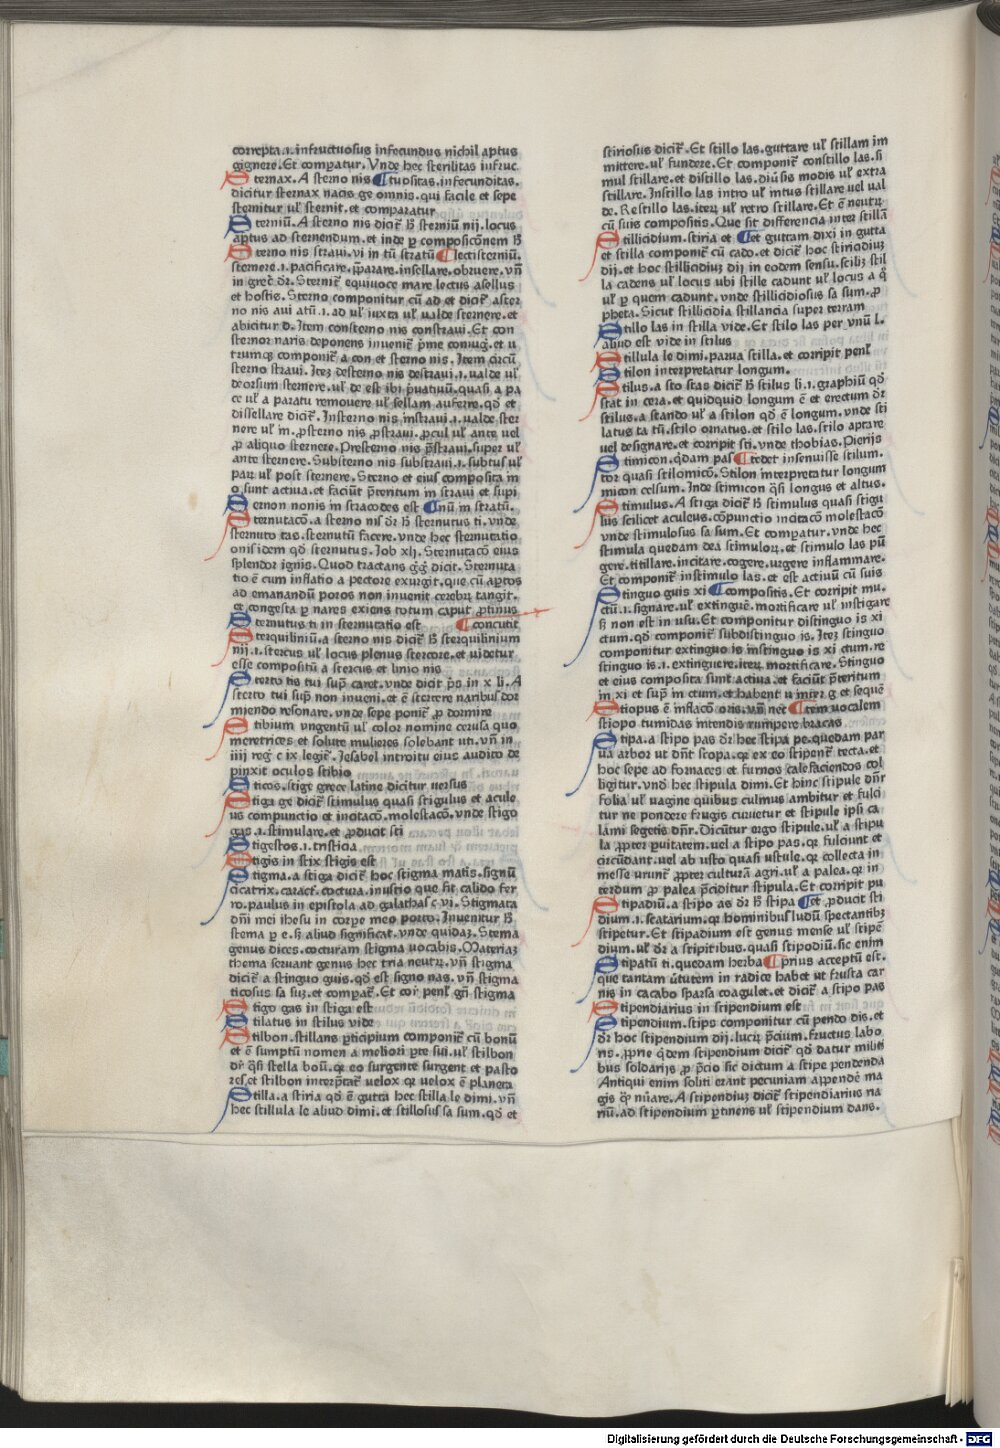 correpta .i. infructuosus infecundus nichil aptus
gignere. Et compatur. Vnde hec sterilitas infruc
Sternax. A sterno nis ¶ tuositas. infecunditas.
dicitur sternax nacis ge omnis. qui facile et sepe
sternitur ul' sternit. et comparatur
Sterniũ. A sterno nis dicit̃ h̃ sterniũ nij. locus
aptus ad sternendum. et inde p composicõnem h̃
Sterno nis straui. vi in tũ stratũ ¶ lectisterniũ.
sternere .i. pacificare. p̃parare. insellare. obruere. vñ
in grec̃ dr̃. Sternit̃ equiuoce mare lectus asellus
et hostis. Sterno componitur cũ ad et dicit̃ aster
no nis aui atũ .i. ad ul' iuxta ul' ualde sternere. et
abicitur d. Item consterno nis constraui. Et con
sternor naris deponens inuenit̃ p̃me coniug̃. et u
trumq̃ componit̃ a con et sterno nis. Item circũ
sterno straui. Itez desterno nis destraui .i. ualde ul'
deorsum sternere. ul' de est ibi p̃uatiuũ. quasi a pa
ce ul' a paratu remouere ul' sellam auferre. qd̃ et
dissellare dicit̃. Insterno nis instraui .i. ualde ster
nere ul' in. p̃sterno nis p̃straui. p̃cul ul' ante uel
p aliquo sternere. Presterno nis p̃straui. super ul'
ante sternere. Substerno nis substraui .i. subtus ul'
paꝝ ul' post sternere. Sterno et eius composita in
o sunt actiua. et faciũt p̃teritum in straui et supi
Sternon nonis in stracodes est ¶ nũ in stratũ.
Sternutacõ. a sterno nis dr̃ h̃ sternutus ti. vnde
sternuto tas. sternutũ facere. vnde hec sternutatio
onis idem qd̃ sternutus. Job xlj. Sternutacõ eius
splendor ignis. Quod tractans g̃g̃ dicit. Sternuta
tio ẽ cum inflatio a pectore exurgit. que cũ ap̃tos
ad emanandũ poros non inuenit cerebꝝ tangit.
et congesta p nares exiens totum caput p̃tinus
Sternutus ti in sternutatio est ¶ concutit
Sterquiliniũ. a sterno nis dicit̃ h̃ sterquilinium
nij .i. stercus ul' locus plenus stercore. et uidetur
esse compositũ a stercus et linio nis
Sterto tis tui sup̃ caret. vnde dicit p̃s in x li. A
sterto tui sup̃ non inueni. et ẽ stertere naribus dor
miendo resonare. vnde sepe ponit̃ p dormire
Stibium vngentũ ul' color nomine cerusa quo
meretrices et solute mulieres solebant uti. vñ in
iiij reg̃ c ix legit̃. Jesabel introitu eius audito de
pinxit oculos stibio
Sticos. stige grece latine dicitur uersus
Stiga ge dicit̃ stimulus quasi stigulus et acule
us compunctio et incitacõ. molestacõ. vnde stigo
gas .i. stimulare. et p̃ducit sti
Stigestos .i. tristicia
Stigis in stix stigis est
Stigma. a stiga dicit̃ hoc stigma matis. signũ
cicatrix. caract̃. coctura. inustio que fit calido fer
ro. paulus in epistola ad galathas c vi. Stigmata
dñi mei ihesu in corpe meo porto. Inuenitur h̃
stema p e. s̃ aliud significat. vnde quidaz. Stema
genus dices. cocturam stigma uocabis. Materiaz
thema seruant genus hec tria neutꝝ. vñ stigma
dicit̃ a stinguo guis. qd̃ est signo nas. vñ stigma
ticosus sa suz. et compat̃. Et cor̃ penl̃ gñ stigma
Stigo gas in stiga est
Stilatus in stilus vide
Stilbon. stillans p̃ticipium componit̃ cũ bonũ
et ẽ sumptũ nomen a meliori p̃te sui. ul' stilbon
dr̃ q̃si stella boũ. qz eo surgente surgent et pasto
res. et stilbon interp̃tat̃ velox. qz velox ẽ planeta
Stilla. a stiria qd̃ ẽ gutta hec stilla le dimi. vñ
hec stillula le aliud dimi. et stillosus sa sum. qd̃ et
stiriosus dicit̃. Et stillo las. guttare ul' stillam im
mittere. ul' fundere. Et componit̃ constillo las. si
mul stillare. et distillo las. diũsis modis ul' extra
stillare. Instillo las intro ul' intus stillare uel ual
de. Restillo las. iteꝝ ul' retro stillare. Et ẽ neutꝝ
cũ suis compositis. Que sit differencia inter stillã
Stillicidium. stiria et ¶ et guttam dixi in gutta
et stilla componit̃ cũ cado. et dicit̃ hoc stiricidiuz
dij. et hoc stillicidiuz dij in eodem sensu. scilz stil
la cadens ul' locus ubi stille cadunt ul' locus a q̃
ul' p quem cadunt. vnde stillicidiosus sa sum. p̃
pheta. Sicut stillicidia stillancia super terram
Stillo las in stilla vide. Et stilo las per vnũ l.
aliud est vide in stilus
Stillula le dimi. parua stilla. et corripit penl̃
Stilon interpretatur longum.
Stilus. a sto stas dicit̃ h̃ stilus li .i. graphiũ qd̃
stat in cera. et quidquid longum ẽ et erectum dr̃
stilus. a stando ul' a stilon qd̃ ẽ longum. vnde sti
latus ta tũ. stilo ornatus. et stilo las. stilo aptare
uel designare. et corripit sti. vnde thobias. Pierijs
Stimicon. q̃dam pas ¶ tedet insenuisse stilum.
tor quasi stilomicõ. Stilon interpretatur longum
micon celsum. Inde stimicon q̃si longus et altus.
Stimulus. A stiga dicit̃ h̃ stimulus quasi stigu
lus scilicet aculeus. cõpunctio incitacõ molestacõ
vnde stimulosus sa sum. Et compatur. vnde hec
stimula quedam dea stimuloꝝ. et stimulo las pũ
gere. titillare. incitare. cogere. urgere inflammare.
Et componit̃ instimulo las. et est actiuũ cũ suis
Stinguo guis xi ¶ compositis. Et corripit mu.
ctũ .i. signare. ul' extinguẽ. mortificare ul' instigare
s̃ non est in usu. Et componitur distinguo is xi
ctum. qd̃ componit̃ subdistinguo is. Itez stinguo
componitur extinguo is instinguo is xi ctum. re
stinguo is .i. extinguere. iteꝝ mortificare. Stinguo
et eius composita sunt actiua. et faciũt p̃teritum
in xi et sup̃ in ctum. et habent u inter g et sequẽ
Stiopus ẽ inflacõ oris. vñ net ¶ tem uocalem
stiopo tumidas intendis rumpere bracas
Stipa. a stipo pas dr̃ hec stipa pe. quedam par
ua arbor ut dñt scopa. qz ex eo stipent̃ tecta. et
hoc sepe ad fornaces et furnos calefaciendos col
ligitur. vnd̃ hec stipula dimi. Et hinc stipule dñr
folia ul' uagine quibus culmus ambitur et fulci
tur ne pondere frugis curuetur et stipule ipsi ca
lami segetis dñr. Dicũtur ergo stipule. ul' a stipu
la p̃pter puitatem. uel a stipo pas. qz fulciunt et
circũdant. uel ab usto quasi ustule. qz collecta in
messe urunt̃ p̃pter culturã agri. ul' a palea. qz in
terdum p palea p̃ciditur stipula. Et corripit pu
Stipadiũ. a stipo as dr̃ h̃ stipa ¶ et p̃ducit sti
dium .i. seatarium. qz hominibus ludũ spectantibz
stipetur. Et stipadium est genus mense ul' stipẽ
dium. ul' dr̃ a stipitibus. quasi stipodiũ. sic enim
Stipatũ ti. quedam herba ¶ prius acceptũ est.
que tantam ũtutem in radice habet ut frusta car
nis in cacabo sparsa coagulet. et dicit̃ a stipo pas
Stipendiarius in stipendium est
Stipendium. stips componitur cũ pendo dis. et
dr̃ hoc stipendium dij. lucꝝ p̃cium. fructus labo
ris. p̃prie q̃dem stipendium dicit̃ qd̃ datur militi
bus soldarijs p̃ p̃cio sic dictum a stipe pendenda
Antiqui enim soliti erant pecuniam appendẽ ma
gis q̃ nũare. A stipendiuz dicit̃ stipendiarius na
riũ. ad stipendium p̃tinens ul' stipendium dans.
Digitalisierung gefördert durch die Deutsche Forschungsgemeinschaft - DFG